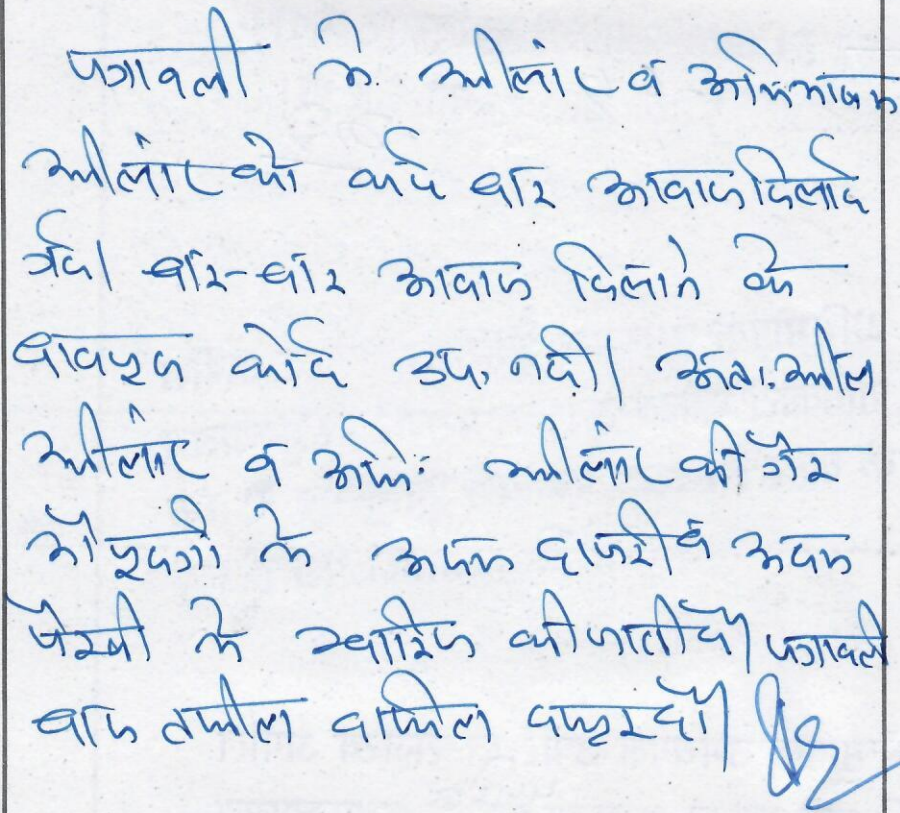 पत्रावली में अपीलांट व अभिभाषक
अपीलांट को कई बार आवाज दिलाई
गई। बार-बार आवाज दिलाने के
बावजूद कोई उप. नहीं। अतः अपील
अपीलांट व अभि. अपीलांट की गैर
मौजूदगी में अदम हाजरी व अदम
पैरवी में खारिज की जाती है। पत्रावली
बाद तकमील दाखिल दफ्तर हो।